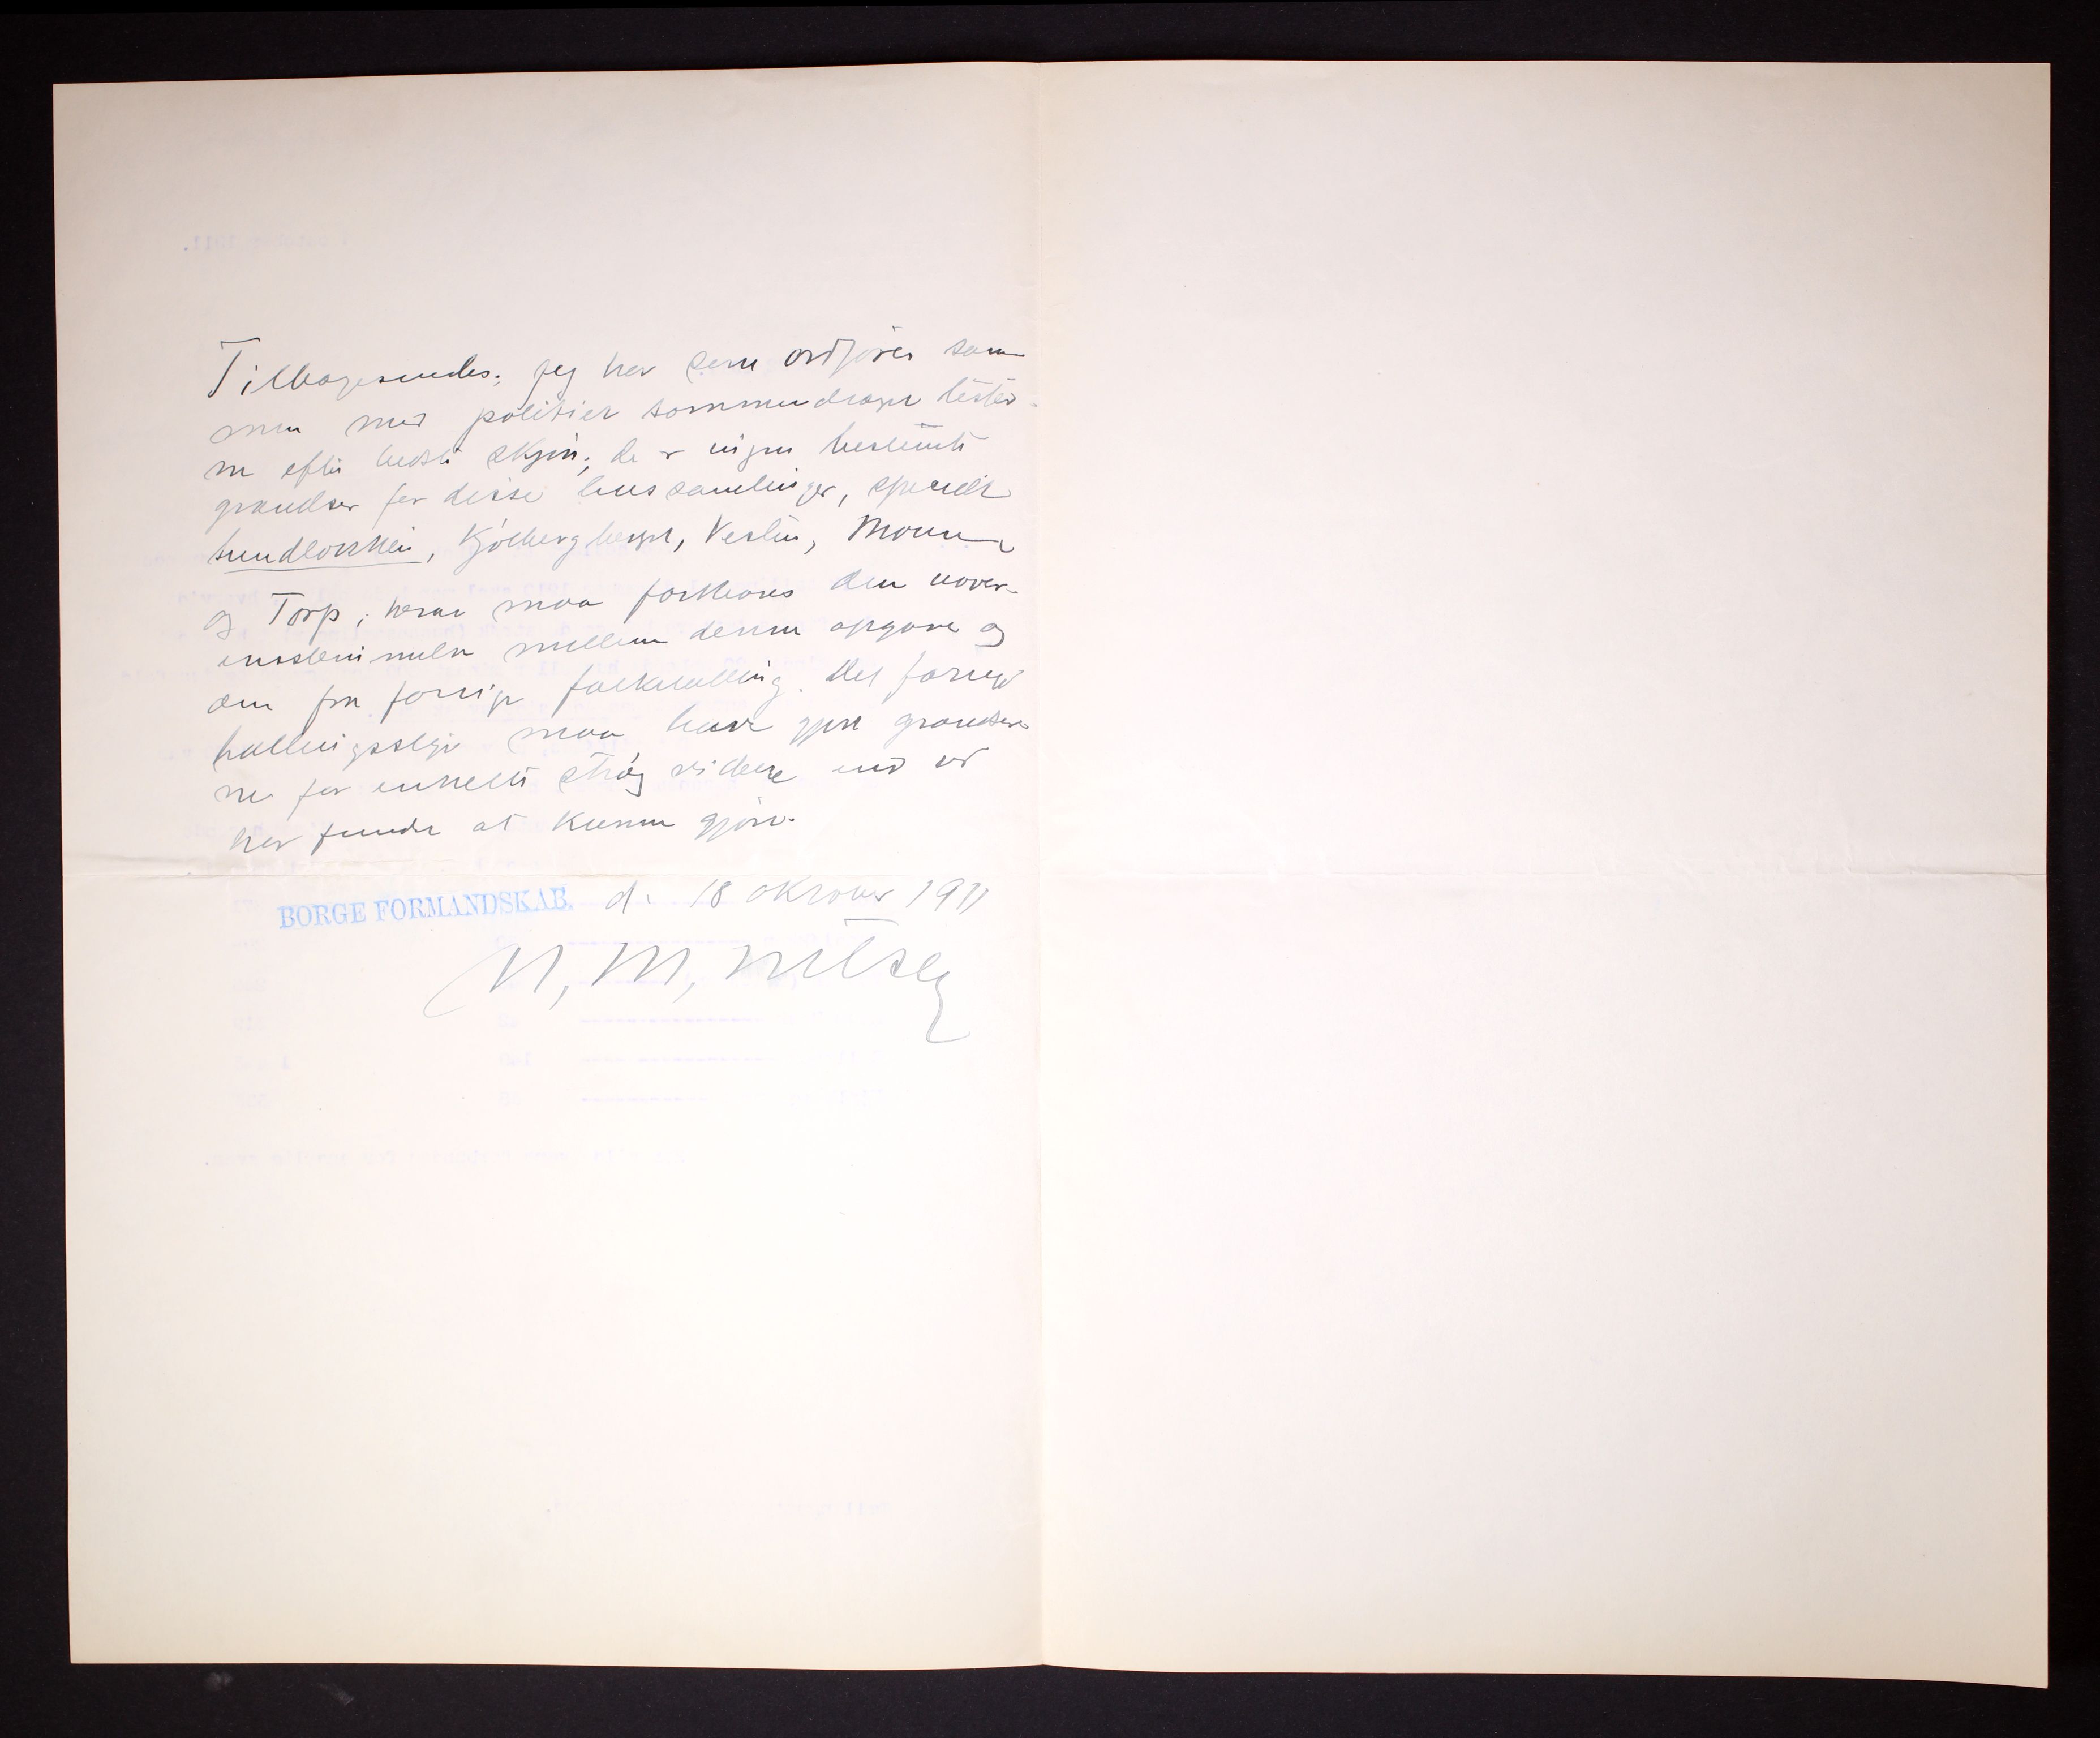 Tilbagesendes; jeg har som ordfører sam
men med politiet sammendraget lister
ne efter bedste skjøn; de er ingen bestemte
grændser for disse hussamlinger, specielt
Sundløkken, Kjølberg berget, Vestlin, Moum
og Torp; herav maa forklares den uover-
ensstemmelse mellem denne opgave og
den fra forrige folketælling. Det forrige
tællingsstyre maa have gjort grændser
ne for enkelte strøg videre end vi
har fundet at kunne gjøre.
BORGE FORMANDSKAB. d. 18 oktober 1911